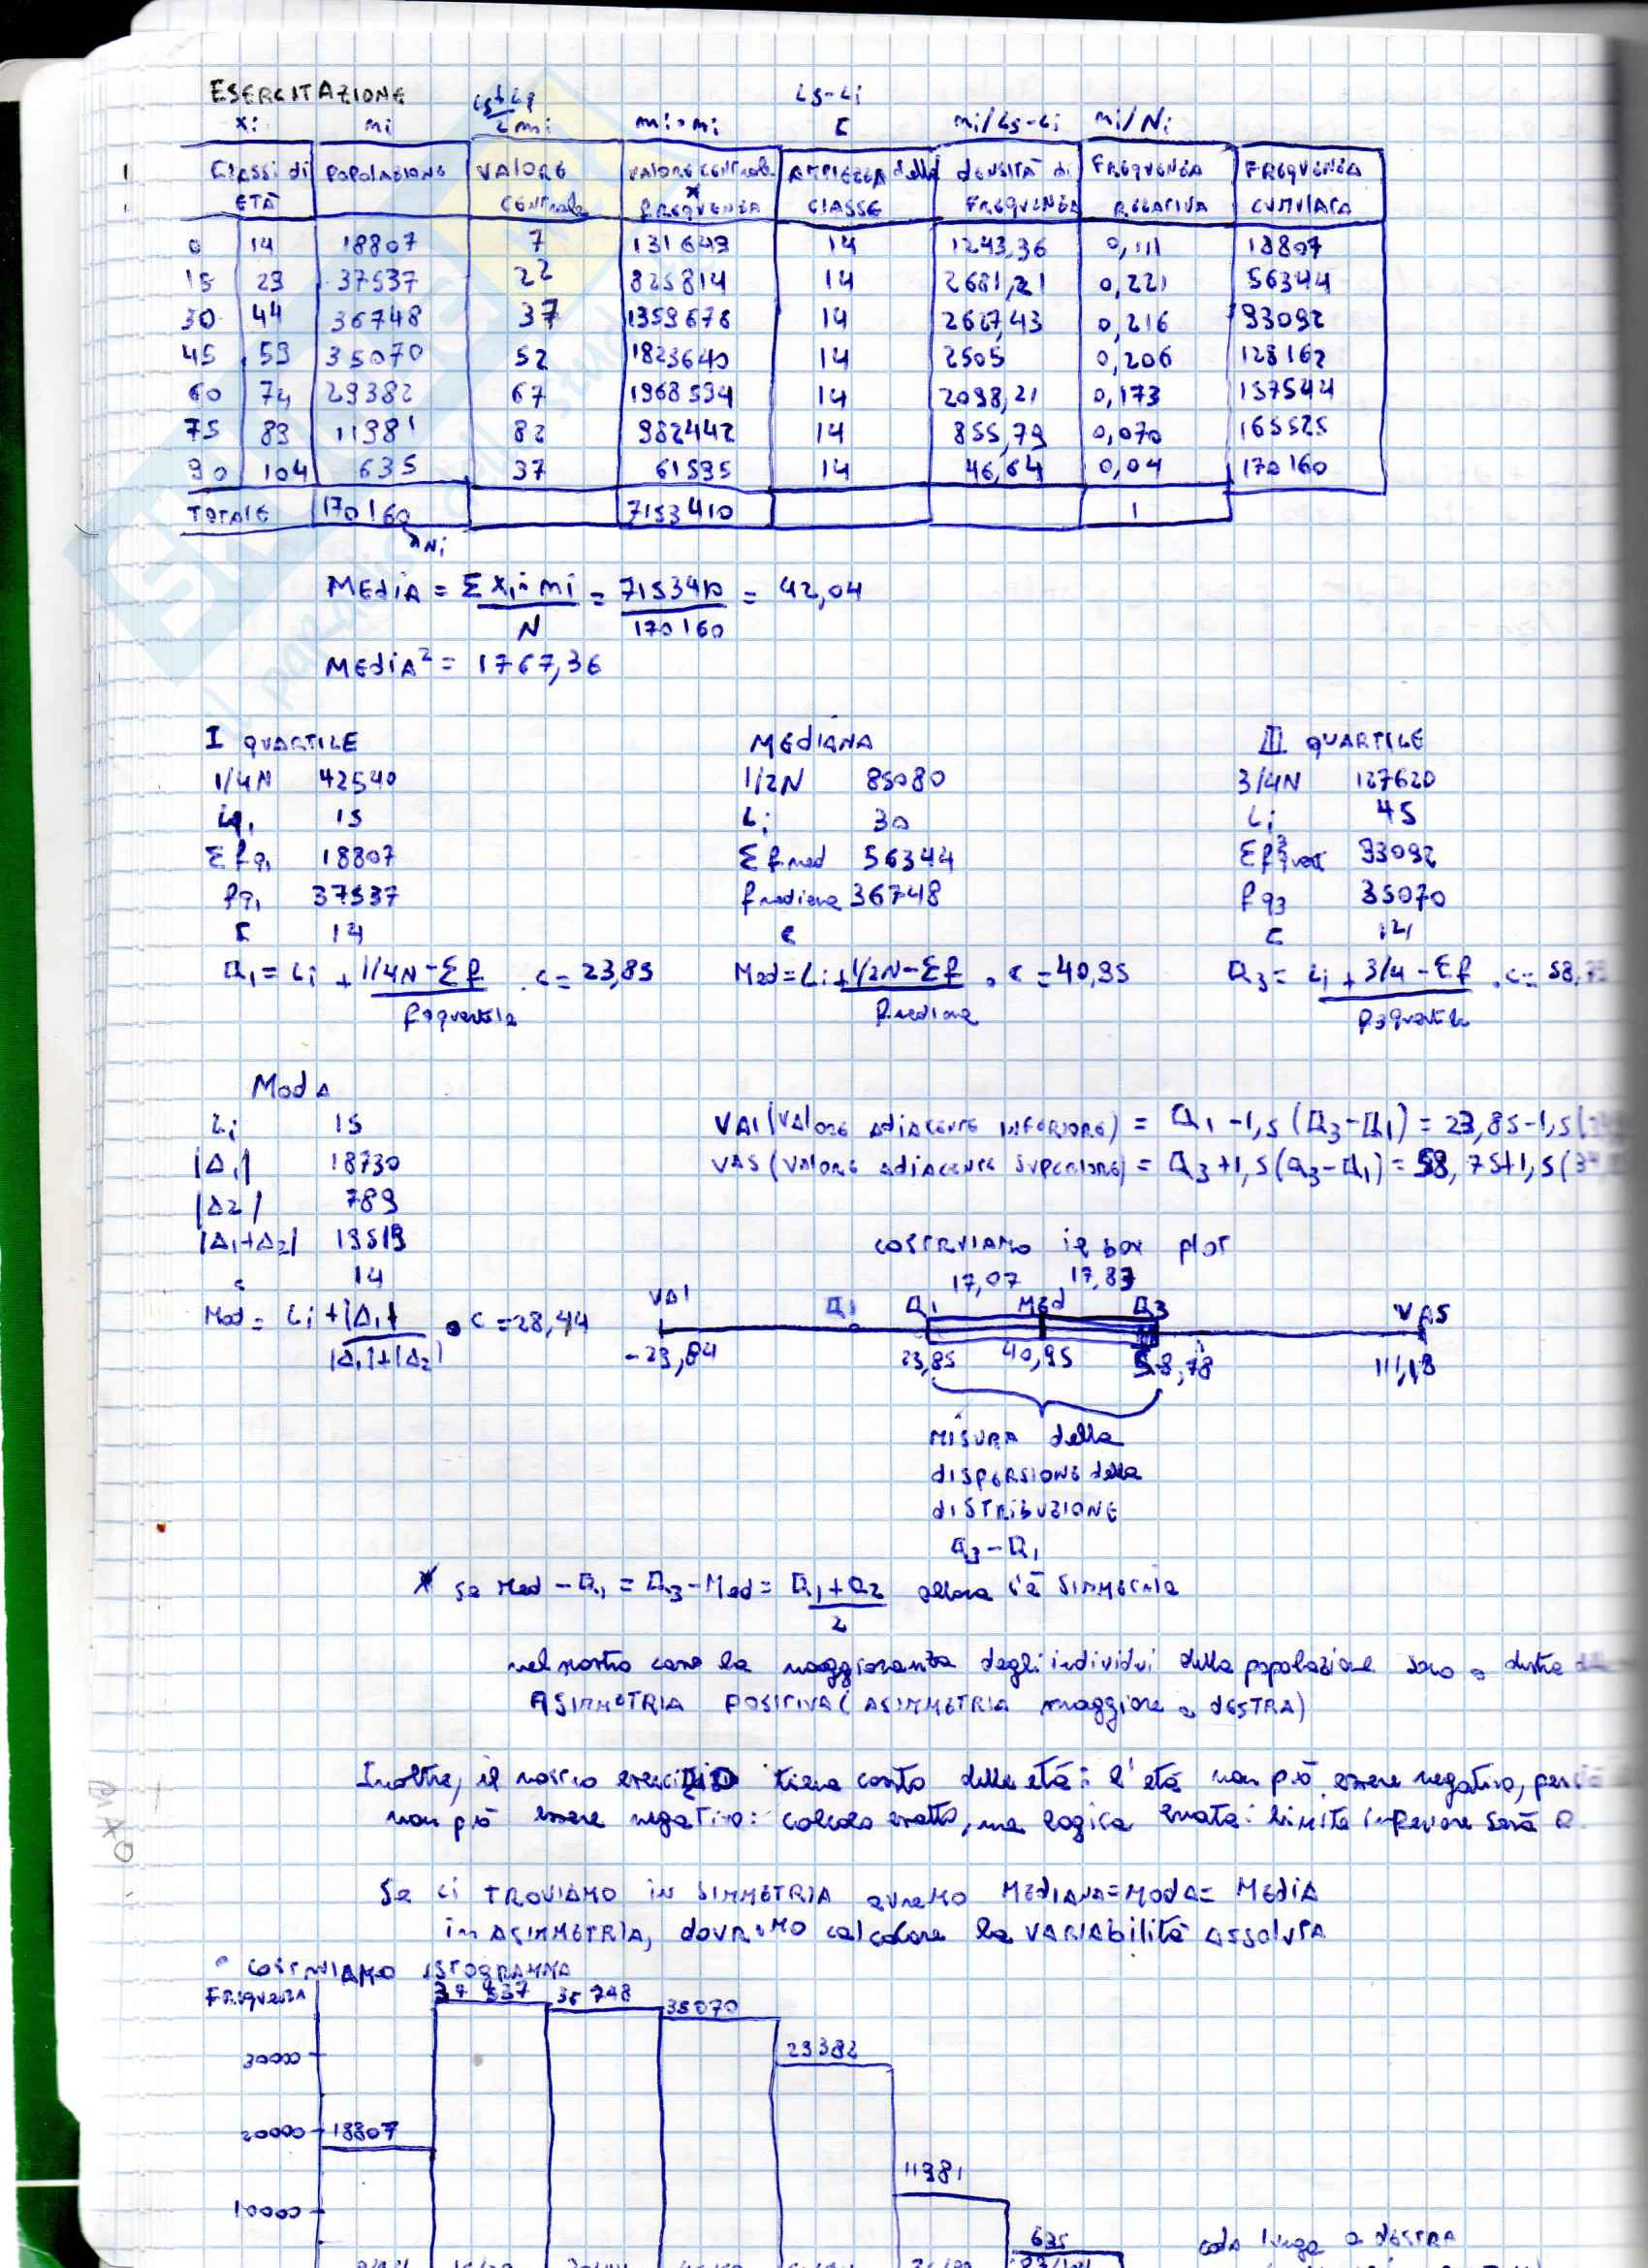 ESERCITAZIONE
xi ni Ls+Li/2 mi mi·ni Ls-Li c ni/Ls-Li ni/Ni
Classi di ETÀ POPOLAZIONE VALORE CENTRALE VALORE CENTRALE * FREQUENZA AMPIEZZA della CLASSE DENSITÀ di FREQUENZA FREQUENZA RELATIVA FREQUENZA CUMULATA
0 14 18807 7 131649 14 1343,36 0,111 18807
15 29 37537 22 825814 14 2681,21 0,221 56344
30 44 36748 37 1359676 14 2627,43 0,216 93092
45 59 35070 52 1823640 14 2505 0,206 128162
60 74 29382 67 1968594 14 2098,21 0,173 157544
75 89 11981 82 982442 14 855,79 0,070 169525
90 104 635 97 61595 14 46,64 0,04 170160
TOTALE 170160 7153410 1
Ni
MEDIA = Σ xi·ni / N = 7153410 / 170160 = 42,04
MEDIA² = 1767,36
I QUARTILE MEDIANA III QUARTILE
1/4N 42540 1/2N 85080 3/4N 127620
Lq1 15 Li 30 Li 45
Σfq1 18807 Σf med 56344 Σf 3°quart 93092
fq1 37537 f mediana 36748 fq3 35070
c 14 c c 14
Q1 = Li + 1/4N-Σf / fquartile · c = 23,85 Med = Li + 1/2N-Σf / fmediana · c = 40,95 Q3 = Li + 3/4-Σf / f3quartile · c = 58,7
Moda
Li 15 VAI (VALORE ADIACENTE INFERIORE) = Q1 -1,5 (Q3-Q1) = 23,85-1,5(
|Δ1| 18730 VAS (VALORE ADIACENTE SUPERIORE) = Q3+1,5(Q3-Q1) = 58,78+1,5(34
|Δ2| 789
|Δ1+Δ2| 19519 COSTRUIAMO il box plot
c 14 17,07 17,83
Mod = Li + |Δ1| / |Δ1|+|Δ2| · c = 28,44 VAI Q1 Q1 MEd Q3 VAS
-29,04 23,85 40,95 58,78 111,18
MISURA della
DISPERSIONE della
DISTRIBUZIONE
Q3-Q1
* se Med - Q1 = Q3 - Med = Q1+Q2 / 2 allora c'è SIMMETRIA
nel nostro caso la maggioranza degli individui della popolazione sono a destra
ASIMMETRIA POSITIVA (ASIMMETRIA maggiore a DESTRA)
Inoltre, il nostro esercizio tiene conto delle età: l'età non può essere negativa,
non può essere negativo: calcolo esatto, ma logica errata: limite inferiore sarà 0.
Se ci TROVIAMO in SIMMETRIA avremo MEDIANA=MODA= MEDIA
in ASIMMETRIA, dovremo calcolare la VARIABILITÀ ASSOLUTA
° COSTRUIAMO ISTOGRAMMA
FREQUENZA 37537 36748 35070
30000 29382
20000 18807
11981
10000
635 coda lunga a DESTRA